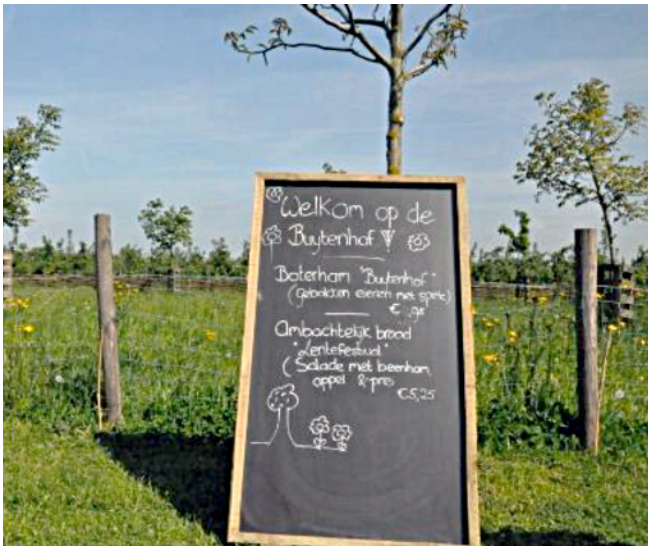 Welkom op de
Buytenhof
Boterham "Buytenhof"
(gebakken eieren met spek)
€
Ambachtelijk brood
"Lentefestival"
(Salade met beenham,
appel & prei
€5,25